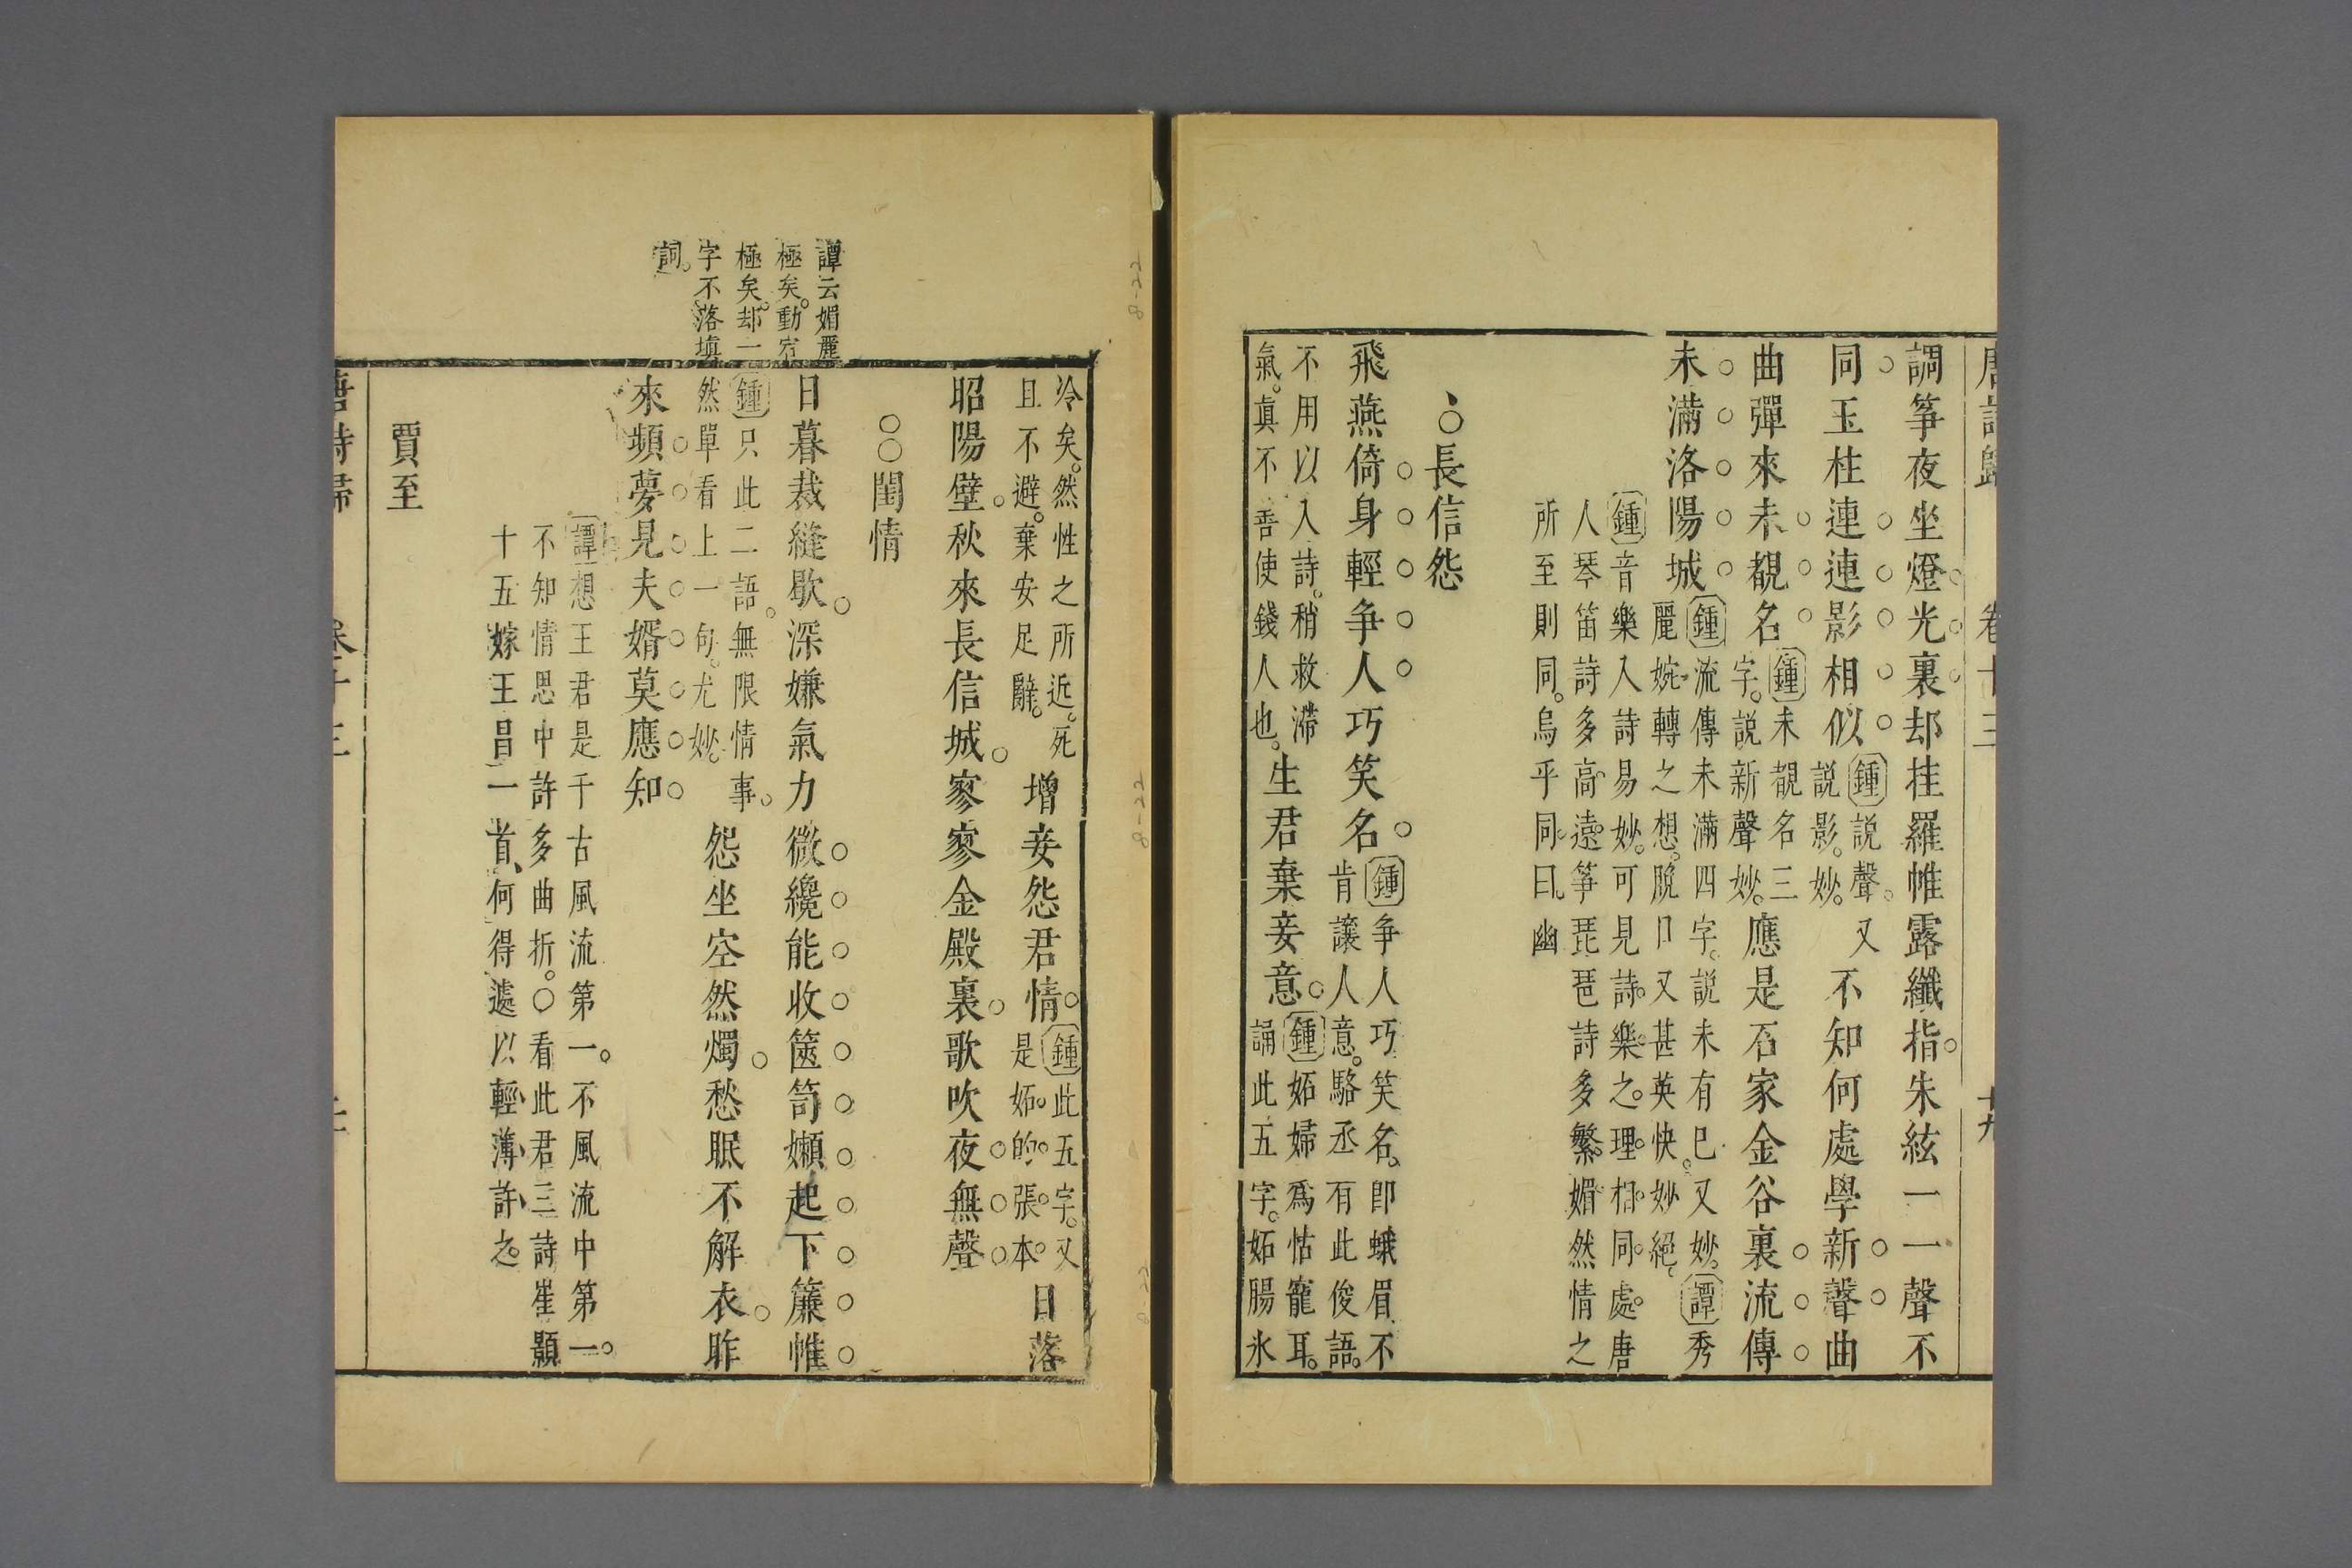 唐詩歸　卷十三　十九
調筝夜坐燈光裏却挂羅帷露纖指朱絃一一聲不
同玉柱連連影相似
鍾說聲又
說影妙
不知何處學新聲曲
曲彈來未覩名
鍾未覩名三
字說新聲妙
應是石家金谷裏流傳
未滿洛陽城
鍾流傳未滿四字說未有已又妙譚秀
麗婉轉之想脫口又甚英快妙絕
鍾音樂入詩易妙可見詩樂之理相同處唐
人琴笛詩多高遠筝琵琶詩多繁媚然情之
所至則同烏乎同曰幽
長信怨
飛燕倚身輕争人巧笑名
鍾争人巧笑名即蛾眉不
肯讓人意駱丞有此俊語
不用以入詩稍救滯
氣眞不善使錢人也
生君棄妾意
鍾妬婦爲怙寵耳
誦此五字妬腸氷
冷矣然性之所近死
且不避棄安足辭
增妾怨君情
鍾此五字又
是妬的張本
日落
昭陽壁秋來長信城寥寥金殿裏歌吹夜無聲
閨情
譚云媚麗
極矣動宕
極矣却一
字不落塡
詞
日暮裁縫歇深嫌氣力微纔能收篋笥嬾起下簾帷
鍾只此二語無限情事
然單看上一句尤妙
怨坐空然燭愁眠不解衣昨
來頻夢見夫婿莫應知
譚想王君是千古風流第一不風流中第一
不知情思中許多曲折〇看此君三詩崔顥
十五嫁王昌一首何得遽以輕薄許之
賈至
唐詩歸　卷十三　二